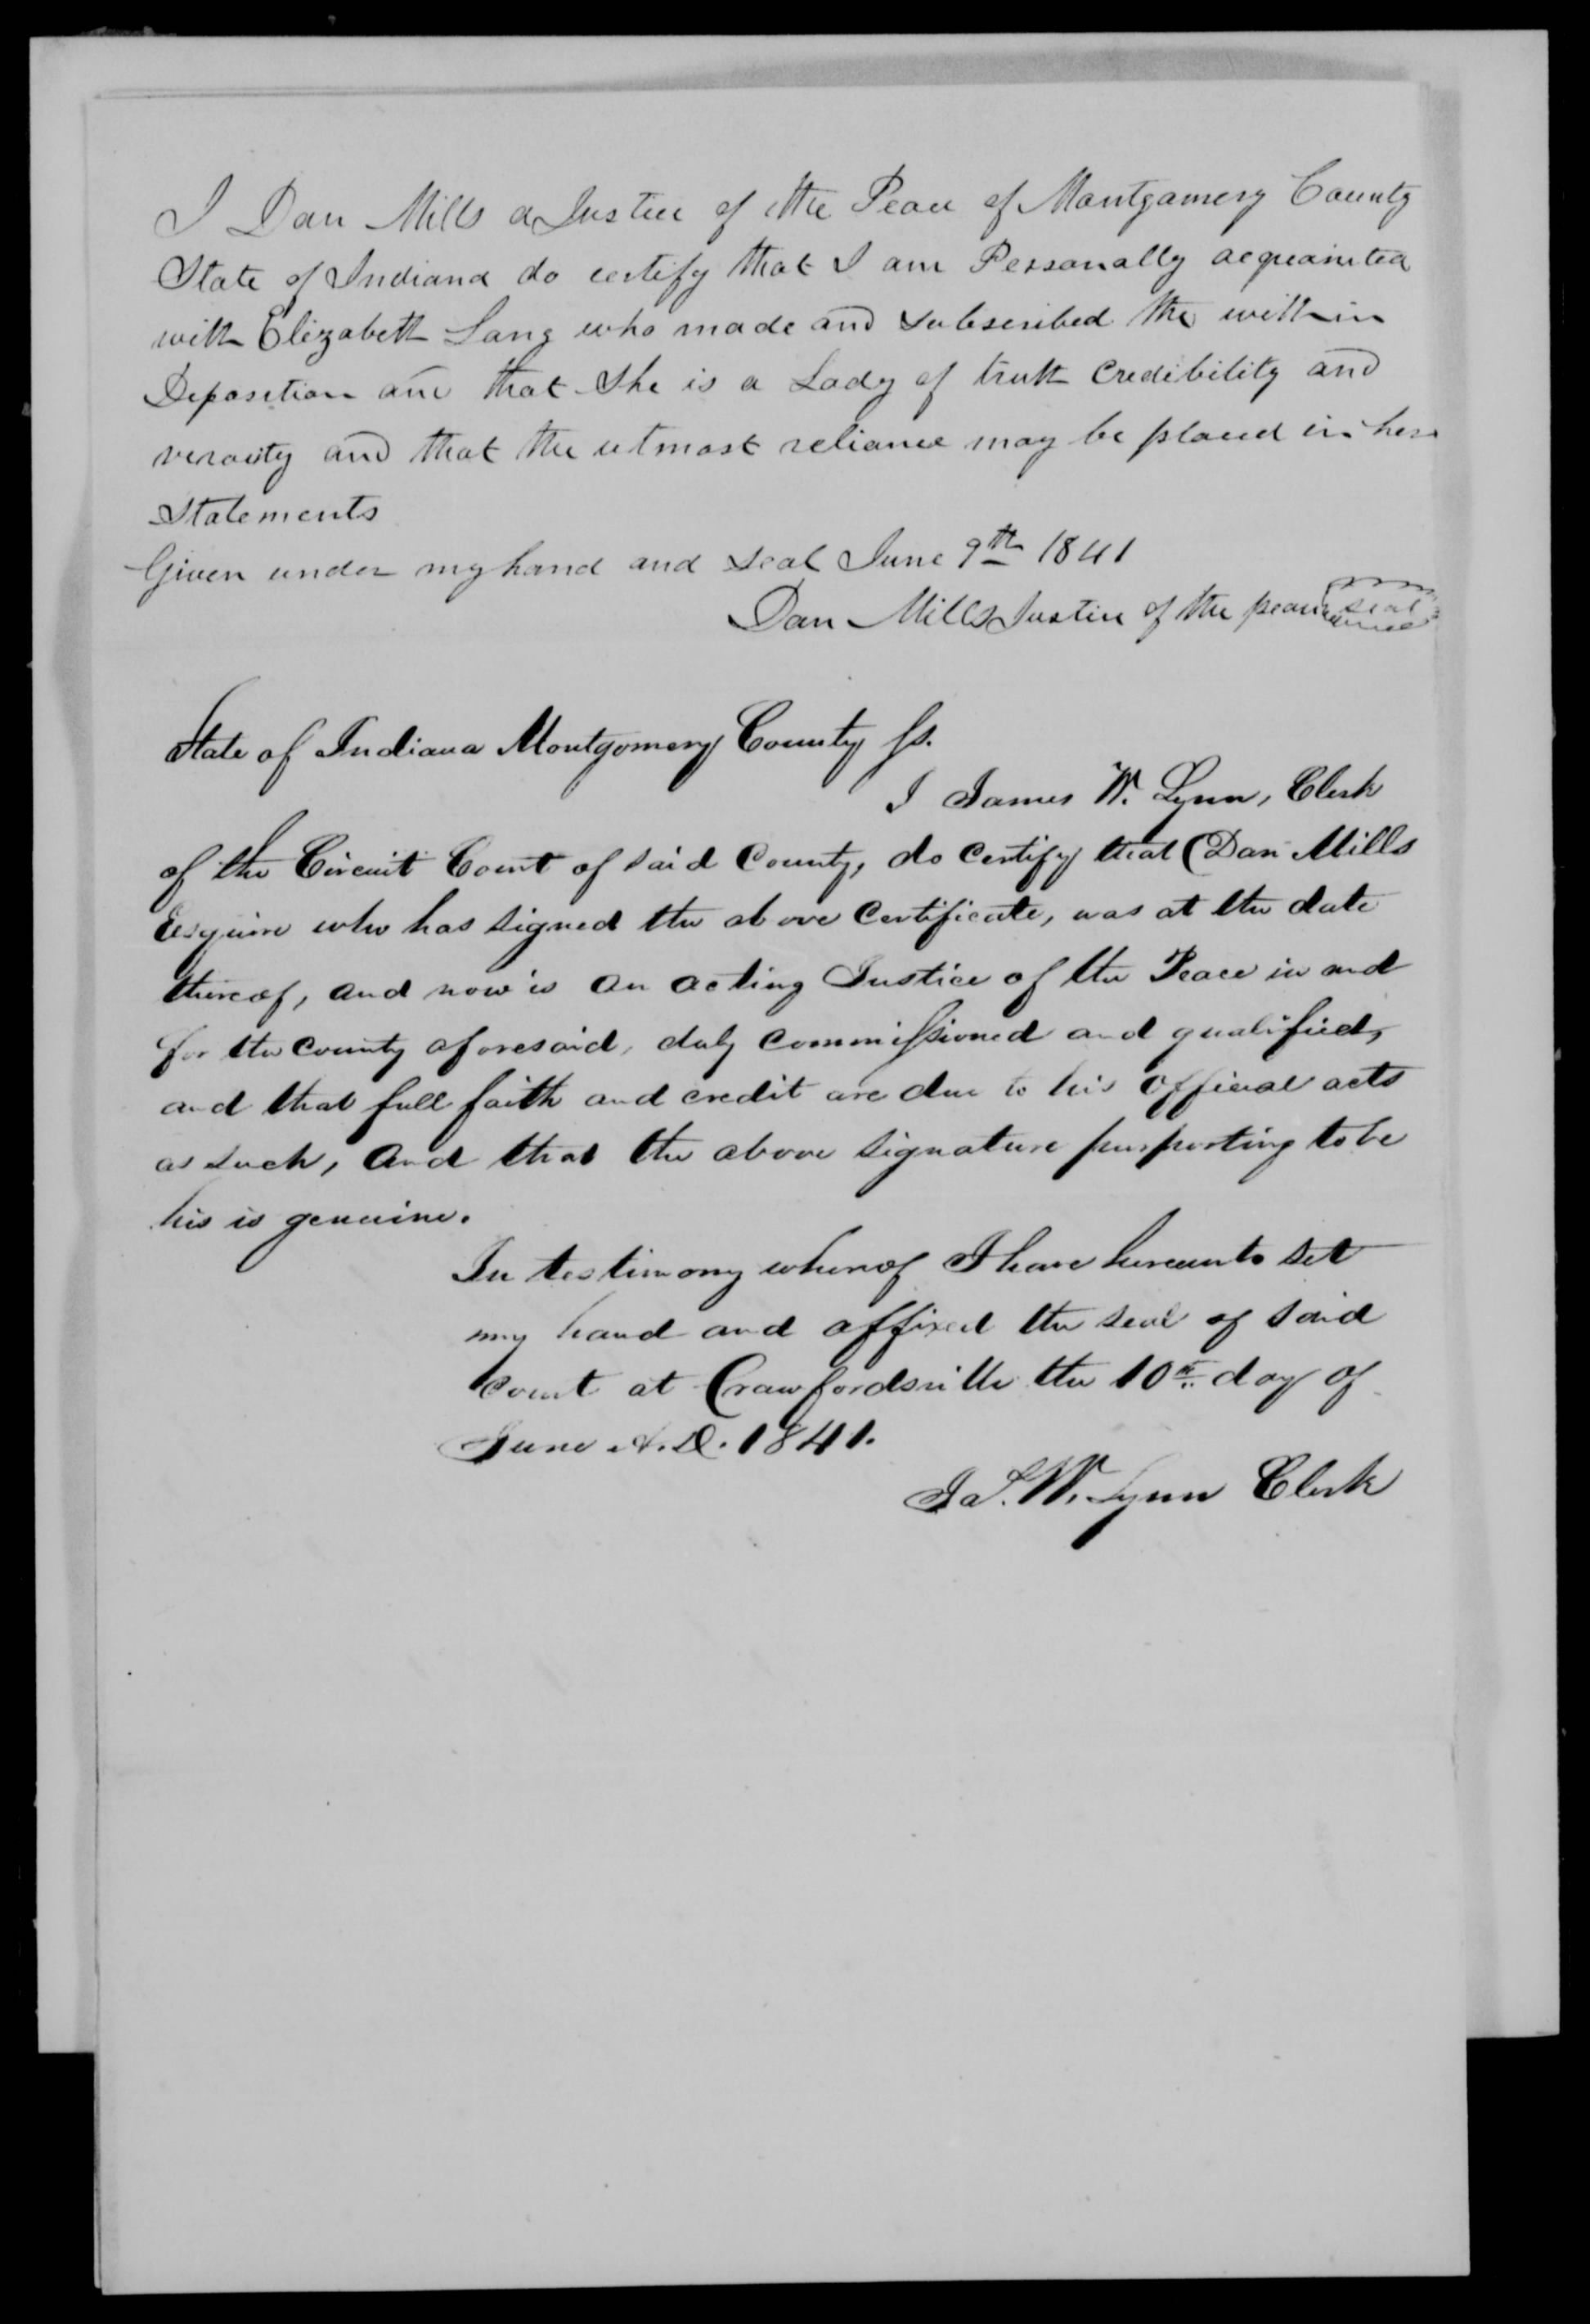 I Dan Mills a Justice of the Peace of Montgomery County
State of Indiana do certify that I am Personally acquainted
with Elizabeth Lang who made and subscribed the within
Deposition and that She is a Lady of truth Credibility and
veracity and that the utmost reliance may be placed in her
Statements
Given under my hand and seal June 9th 1841
Dan Mills Justice of the peace seal
State of Indiana Montgomery County Ss.
I James W. Lynn, Clerk
of the Circuit Court of said County, do Certify that Dan Mills
Esquire who has signed the above Certificate, was at the date
thereof, and now is an acting Justice of the Peace in and
for the County aforesaid, duly Commissioned and qualified,
and that full faith and credit are due to his official acts
as such, and that the above signature purporting to be
his is genuine.
In testimony whereof I have hereunto set
my hand and affixed the seal of said
Court at Crawfordsville the 10th day of
June A.D. 1841.
Ja S. W. Lynn Clerk